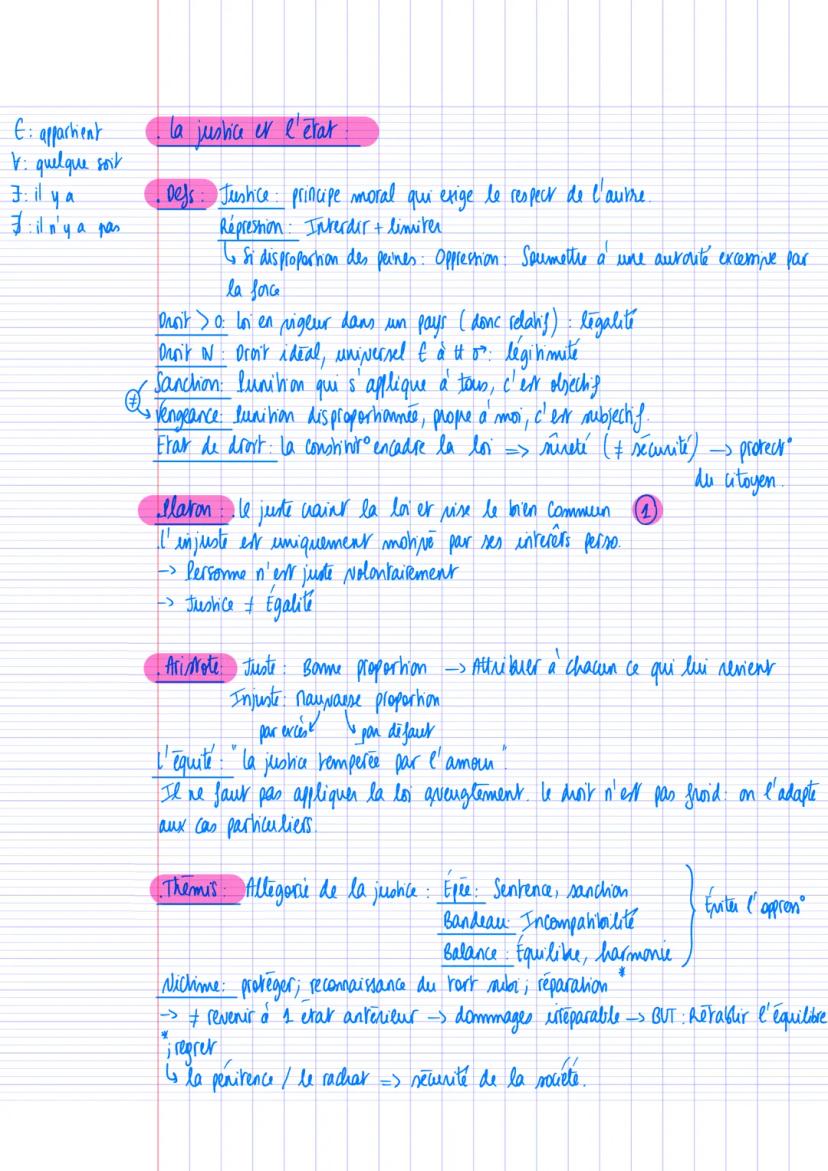 ∈ : appartient
∀ : quelque soit
∃ : il y a
∄ : il n'y a pas
. La justice et l'état :
. Defs : Justice : principe moral qui exige le respect de l'autre.
Répression : Interdir + limiter
↳ Si disproportion des peines : Oppression : Soumettre à une autorité excessive par
la force
Droit > 0 : Loi en vigeur dans un pays (donc relatif) : légalité
Droit N : Droit idéal, universel ∈ à tt : légitimité
Sanction : Punition qui s'applique à tous, c'est objectif
≠
Vengeance : Punition disproportionnée, propre à moi, c'est subjectif.
Etat de droit : la constitut° encadre la loi => sûreté (≠ sécurité) -> protect°
du citoyen.
. Platon : . Le juste craint la loi et vise le bien commun ①
L'injuste est uniquement motivé par ses interêts perso.
-> Personne n'est juste volontairement
-> Justice ≠ Égalité
. Aristote : Juste : Bonne proportion -> Attribuer à chacun ce qui lui revient
Injuste : Mauvaise proportion
par excès ↙ ↘ par défaut
L'équité : "la justice temperée par l'amour".
Il ne faut pas appliquer la loi aveuglement. Le droit n'est pas froid : on l'adapte
aux cas particuliers.
. Thémis : Allégorie de la justice : Épée : Sentence, sanction
Bandeau : Incompatibilité
Balance : Équilibre, harmonie
} Éviter l'oppress°
Victime : protéger ; reconnaissance du tort subi ; réparation *
-> ≠ revenir à 1 état antérieur -> dommages irréparable -> BUT : Rétablir l'équilibre
* ; regret
↳ la pénitence / le rachat => sécurité de la société.